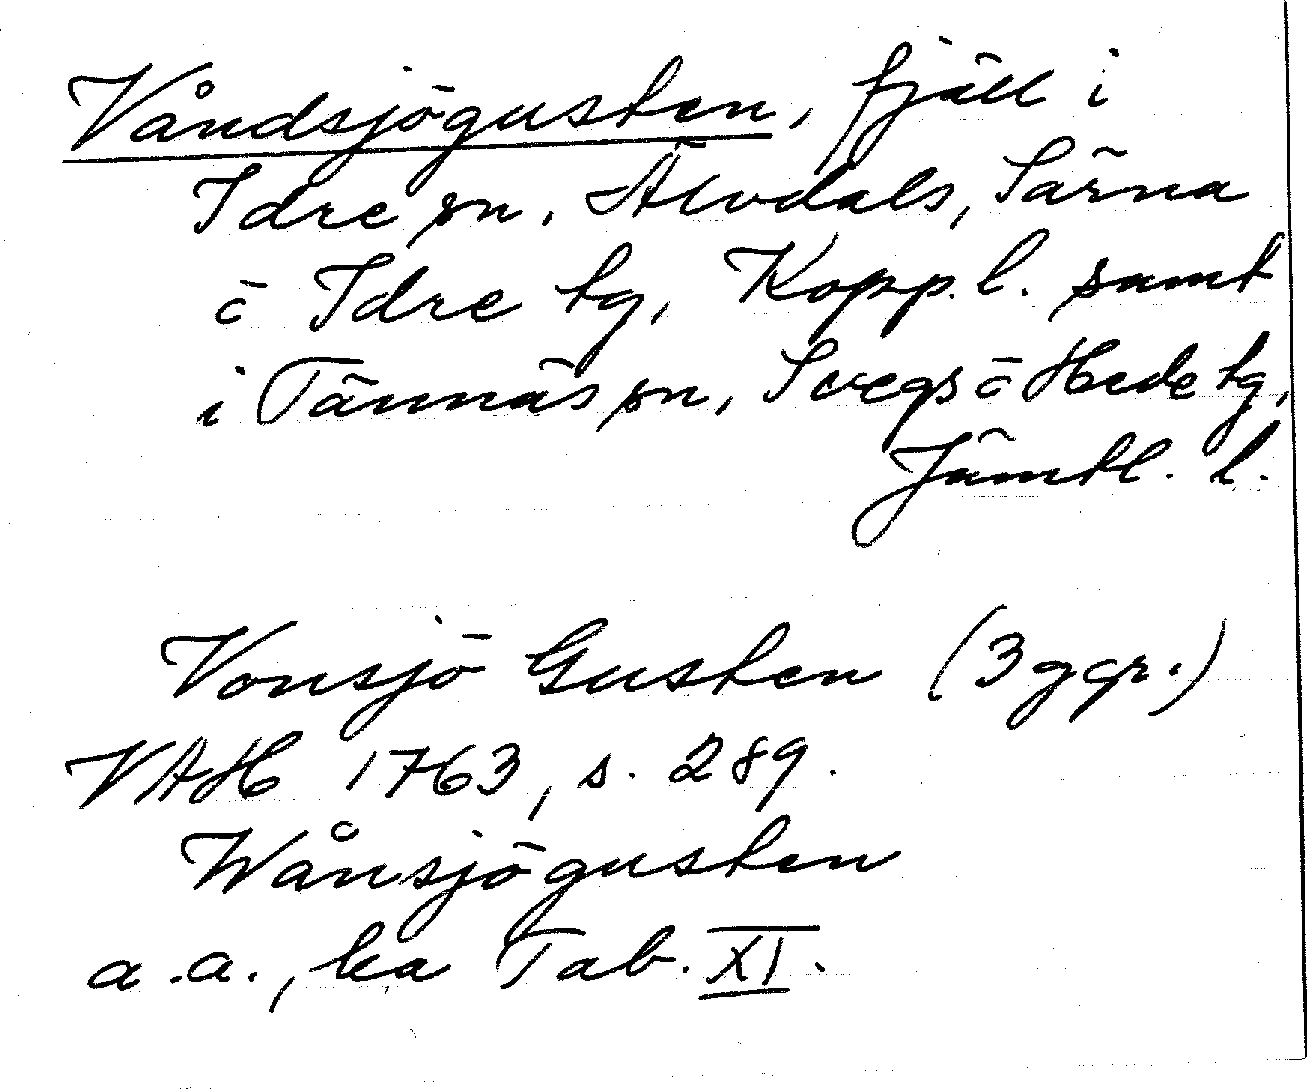 Våndsjögusten, fjäll i
Idre sn, Älvdals, Särna
ö Idre tg, Kopp. l. samt
i Tännäs sn, Svegs ö Hede tg,
Jämtl. l.
Vonsjö Gusten (3 ggr.)
VAH 1763, s. 289.
Wånsjögusten
a.a., ka Tab. XI.